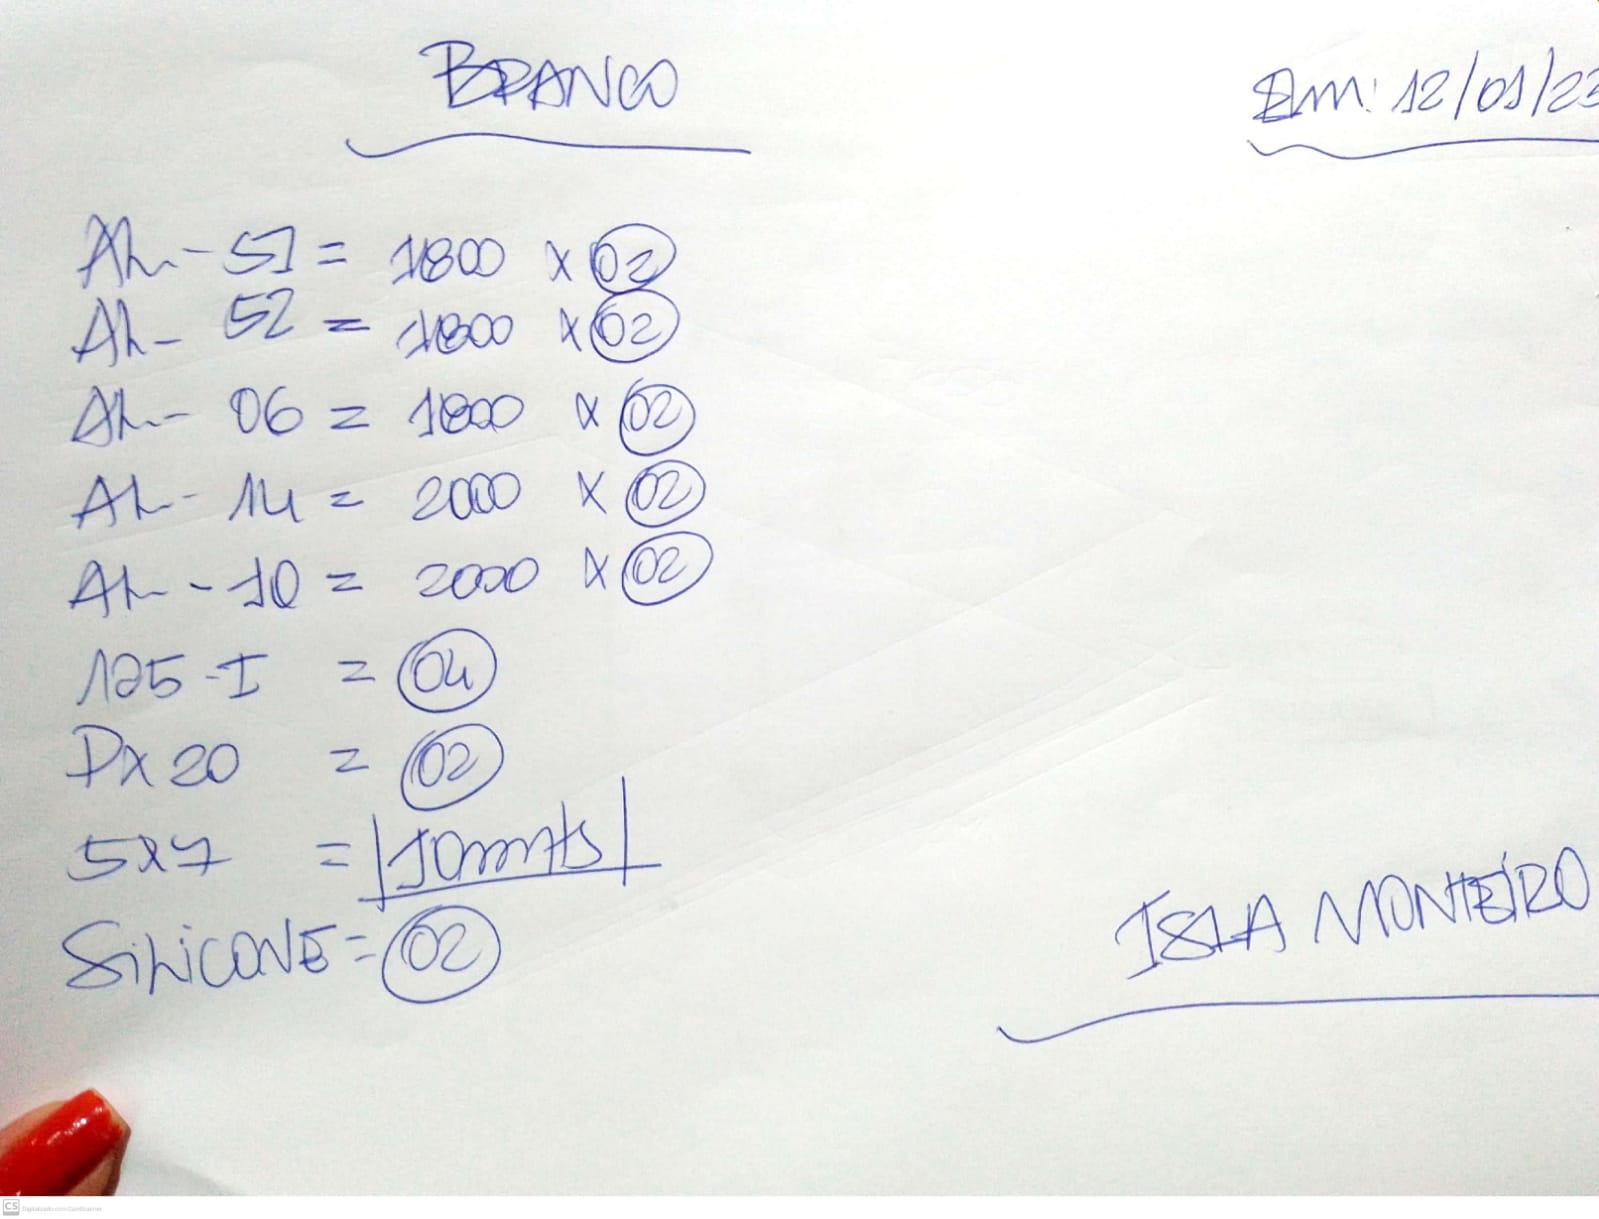 BRANCO
Em: 12/01/23
AL - 51 = 1800 x 02
AL - 52 = 1800 x 02
AL - 06 = 1800 x 02
AL - 14 = 2000 x 02
AL - 10 = 2000 x 02
125 - I = 04
DX 20 = 02
5x7 = 10 mts
SILICONE = 02
ISLA MONTEIRO
CS Digitalizado com CamScanner